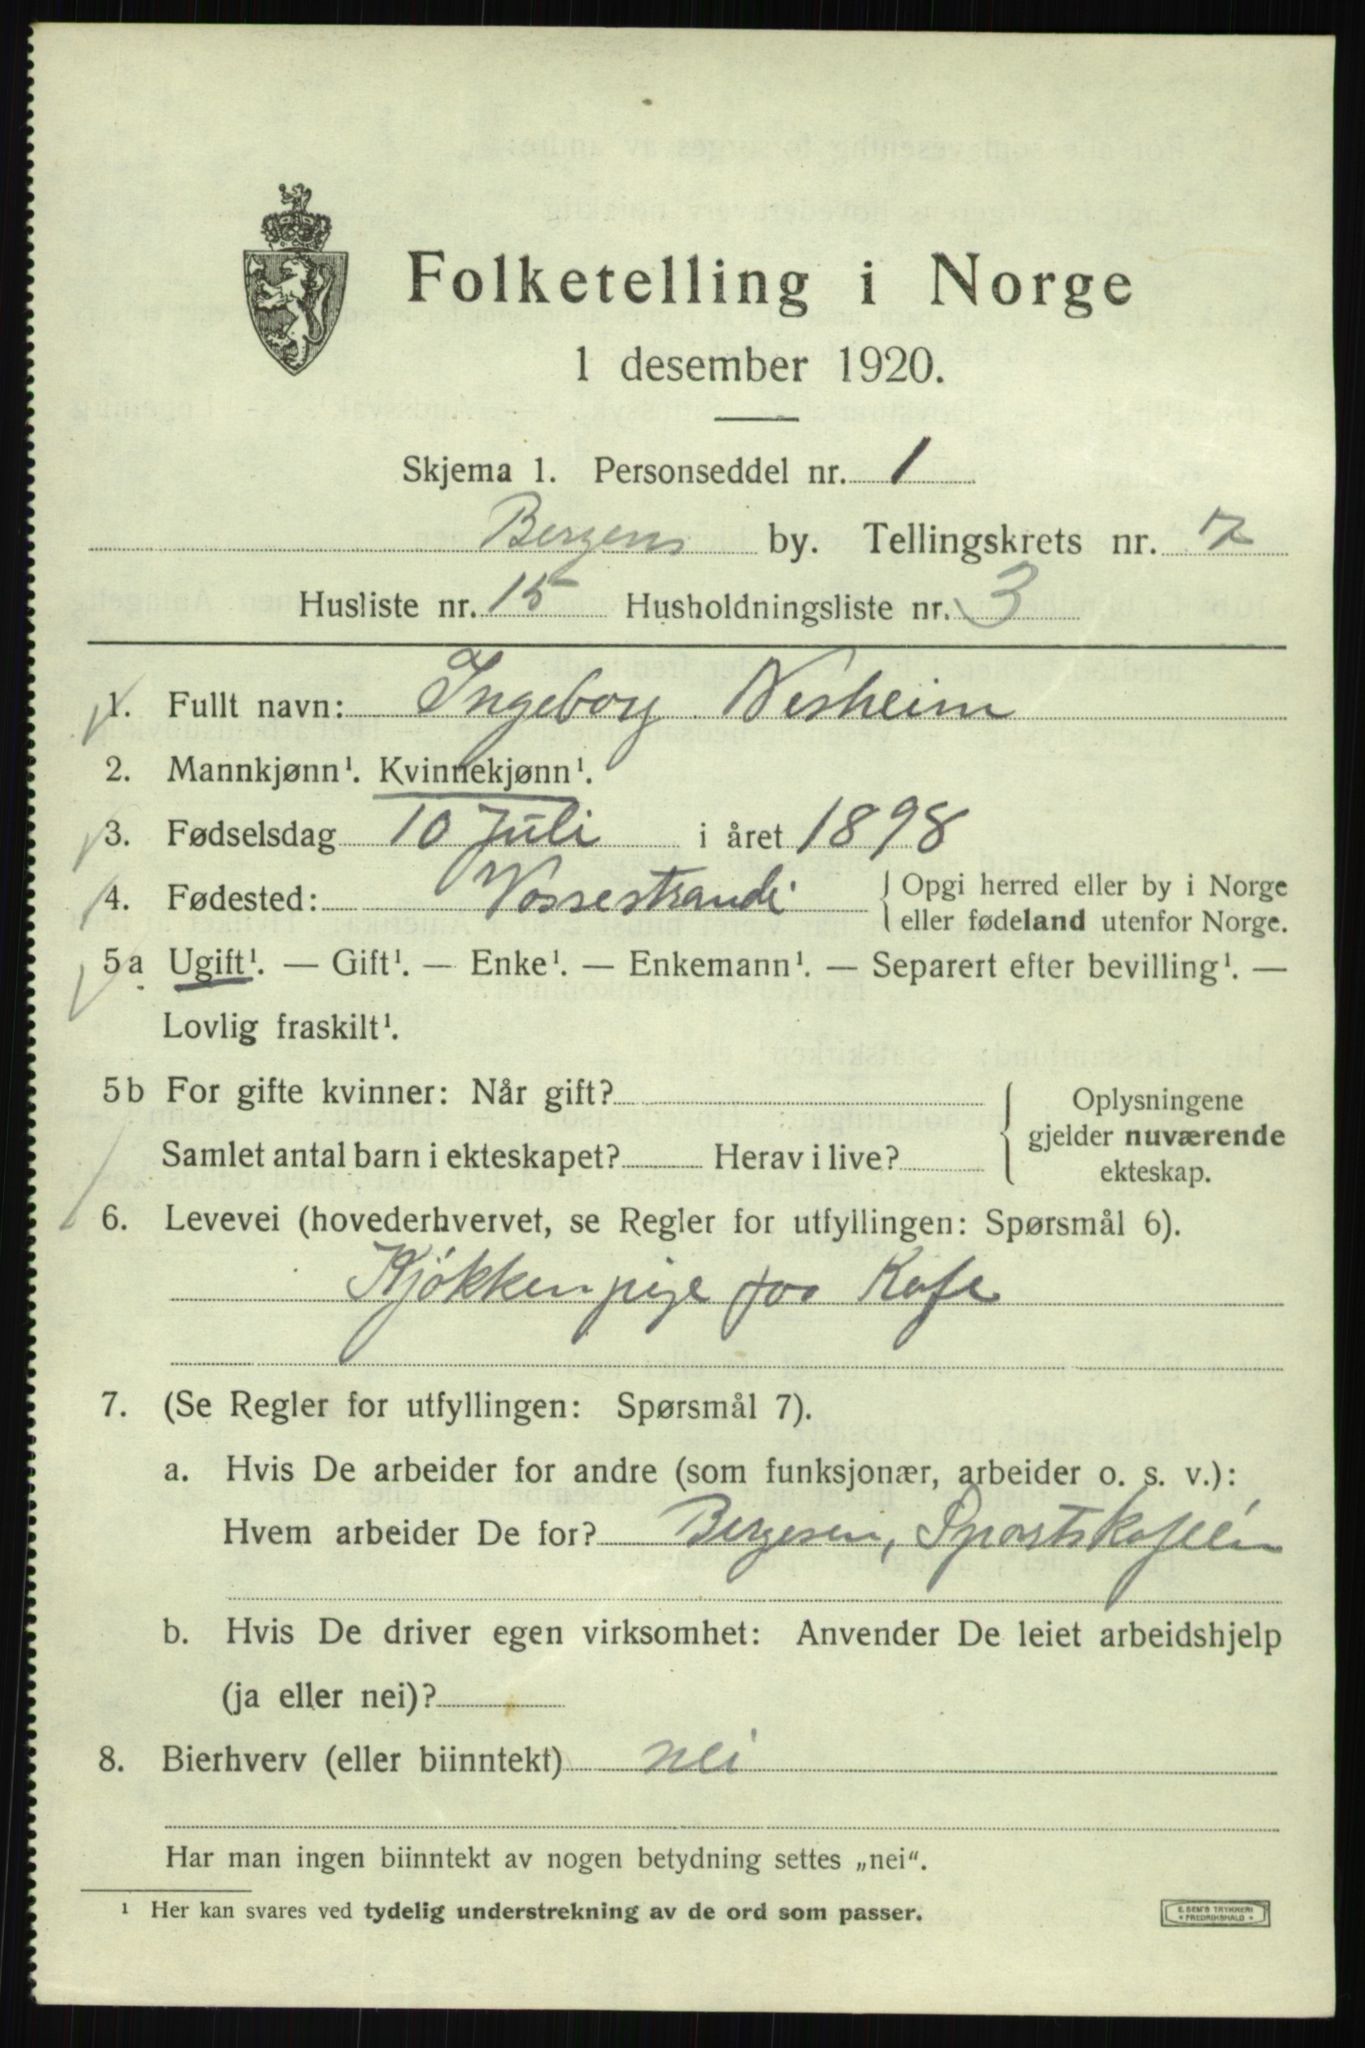 Folketelling i Norge
1 desember 1920.
Skjema 1. Personseddel nr. 1
Bergens by. Tellingskrets nr. 7
Husliste nr. 15 Husholdningsliste nr. 3
1. Fullt navn: Ingeborg Nesheim
2. Mannkjønn¹. Kvinnekjønn¹.
3. Fødselsdag 10 Juli i året 1898
4. Fødested: Vossestrandi { Opgi herred eller by i Norge
eller fødeland utenfor Norge.
5a Ugift¹. — Gift¹. — Enke¹. — Enkemann¹. — Separert efter bevilling¹. —
Lovlig fraskilt¹.
5b For gifte kvinner: Når gift? { Oplysningene
gjelder nuværende
ekteskap.
Samlet antal barn i ekteskapet? Herav i live?
6. Levevei (hovederhvervet, se Regler for utfyllingen: Spørsmål 6).
Kjøkkenpige paa Kafe
7. (Se Regler for utfyllingen: Spørsmål 7).
a. Hvis De arbeider for andre (som funksjonær, arbeider o. s. v.):
Hvem arbeider De for? Bergesen, Sportskafeén
b. Hvis De driver egen virksomhet: Anvender De leiet arbeidshjelp
(ja eller nei)?
8. Bierhverv (eller biinntekt) nei
Har man ingen biinntekt av nogen betydning settes „nei“.
¹ Her kan svares ved tydelig understrekning av de ord som passer.
E. SEM'S TRYKKERI
• FREDRIKSHALD •